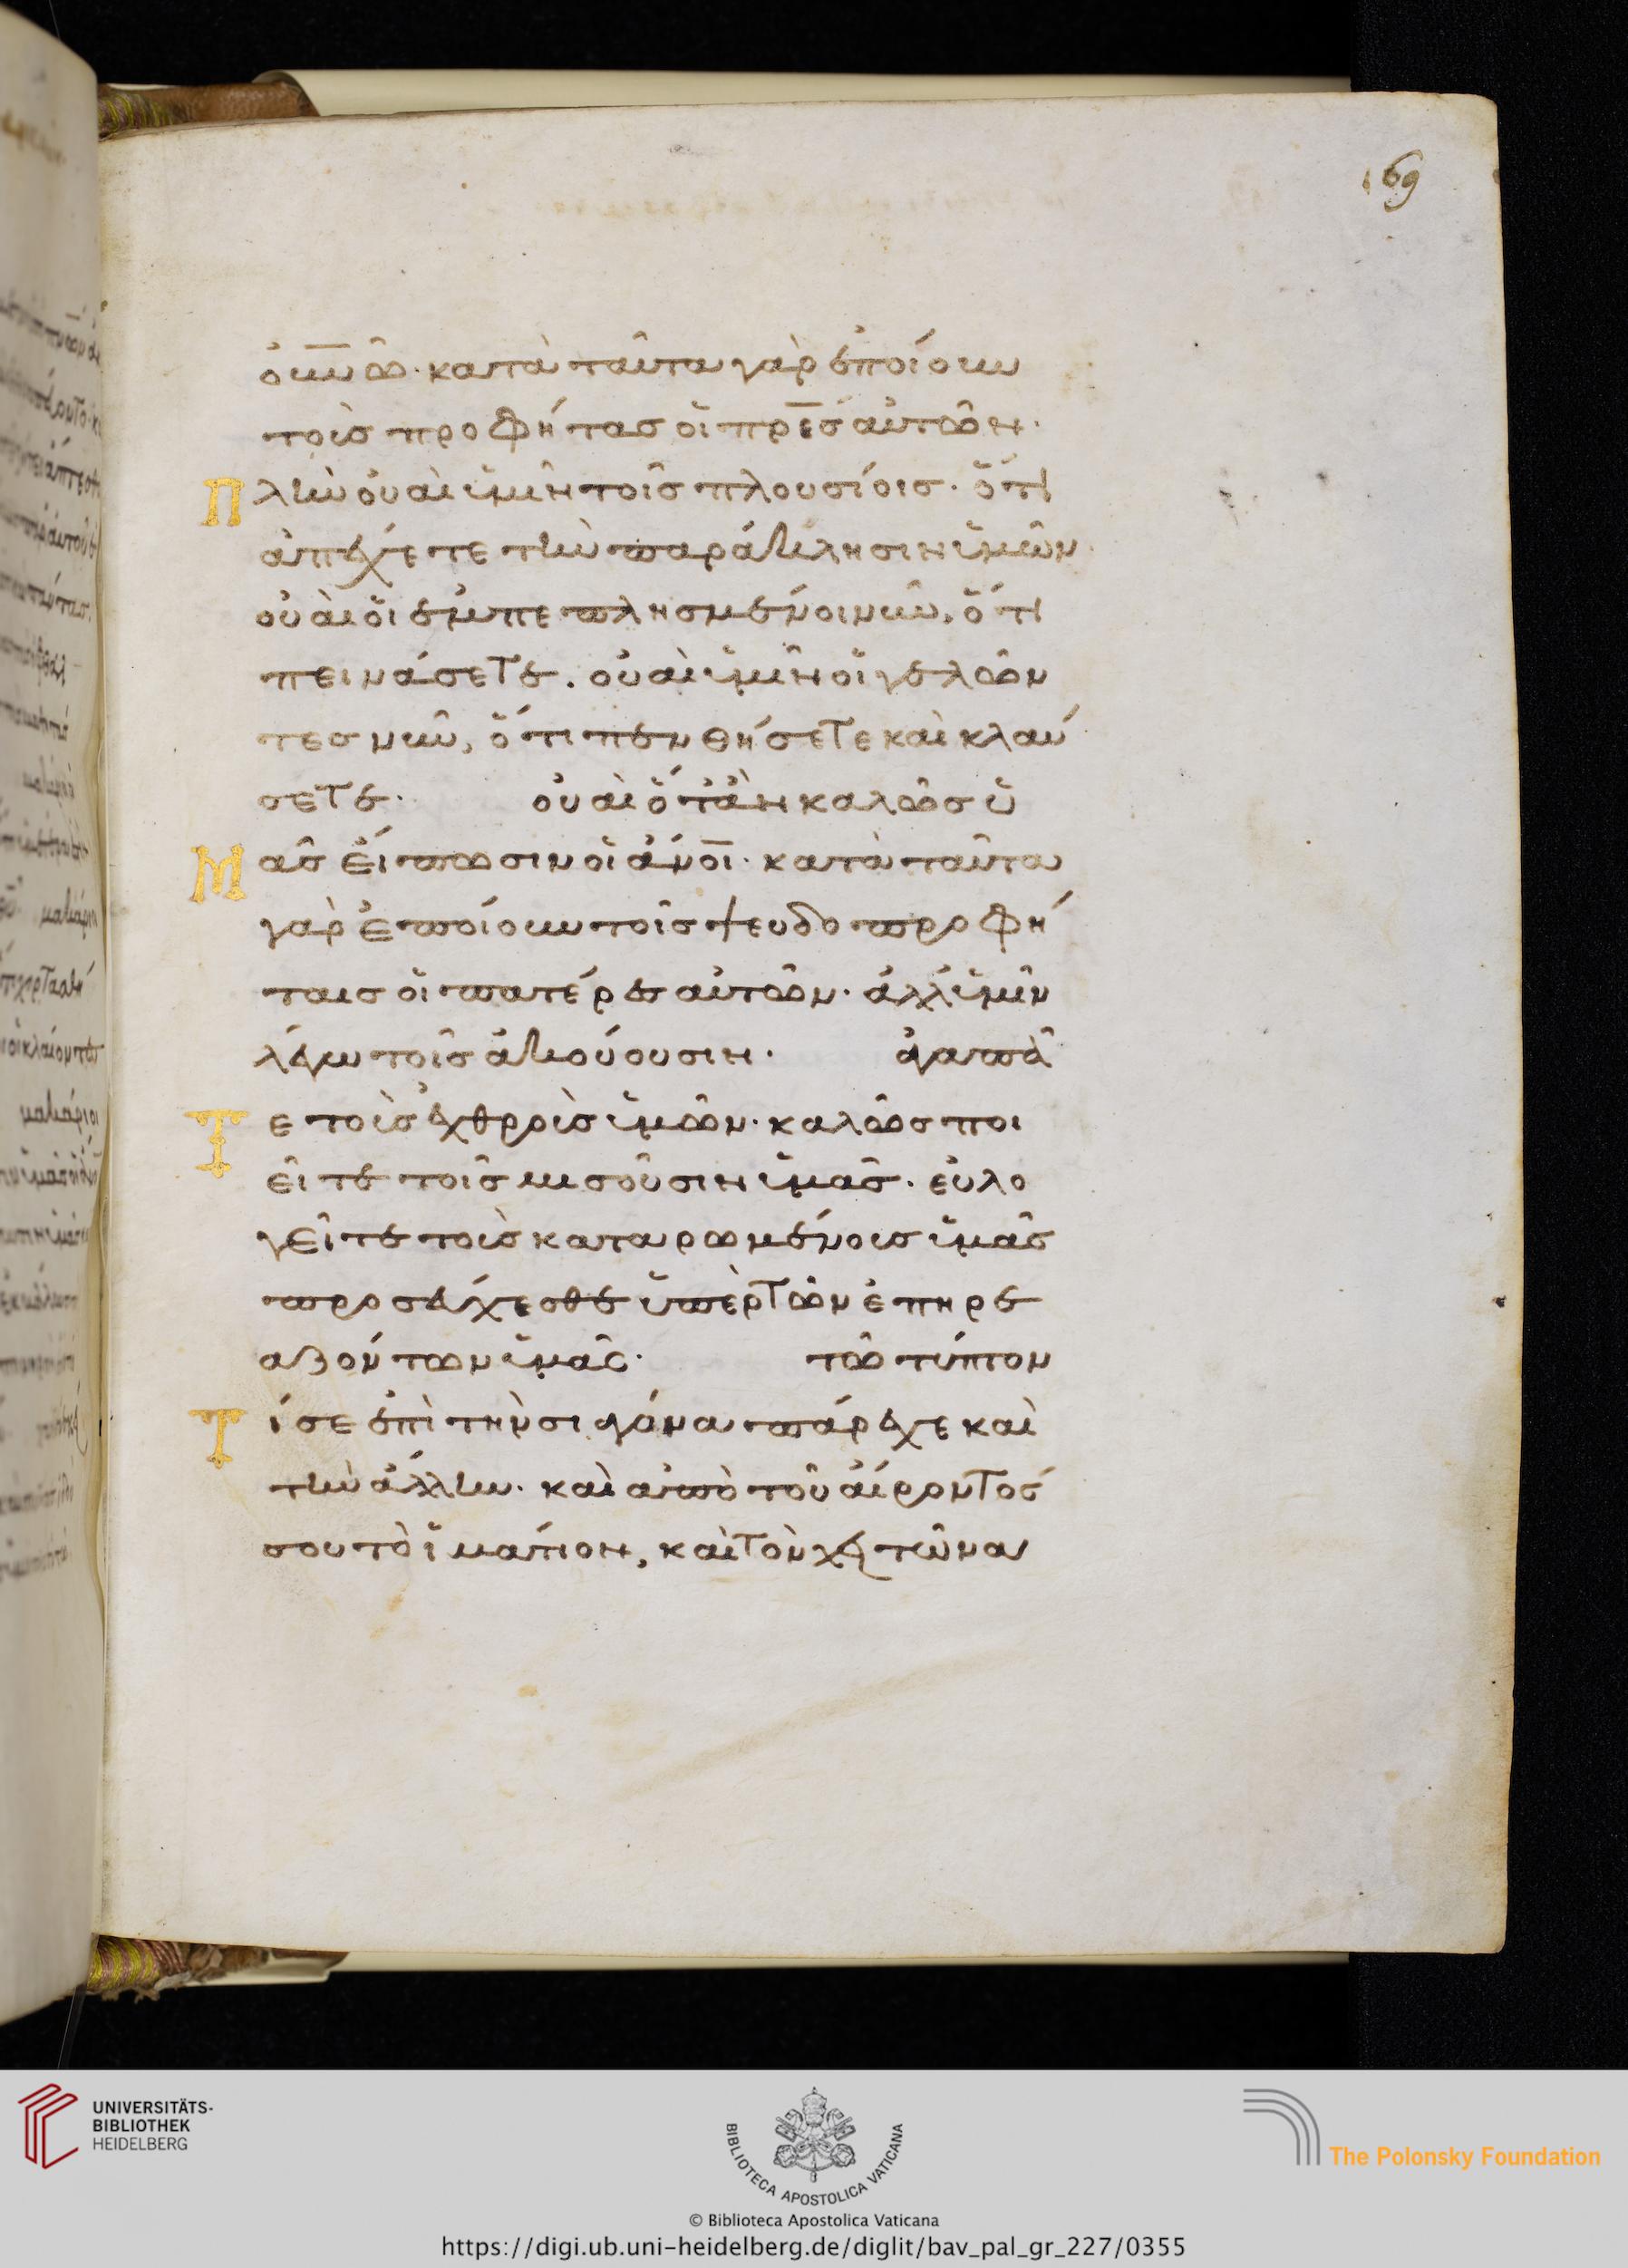 169
ὀυνῶ· κατὰ ταῦτα γὰρ ἐποίουν
τοῖσ προφήτασ οἱ πρ̅ε̅σ αὐτῶν·
Πλὴν οὐαὶ ὑμῖν τοῖσ πλουσίοισ· ὅτι
ἀπέχετε τὴν παράκλησιν ὑμῶν·
οὐαὶ οἱ ἐμπεπλησμένοι νῦν, ὅτι
πεινάσετε. οὐαὶ ὑμῖν οἱ γελῶν
τεσ νῦν, ὅτι πενθήσετε καὶ κλαύ
σετε· οὐαὶ ὅταν καλῶσ ὑ
Μᾶσ εἴπωσιν οἱ ἄν̅ο̅ι̅· κατὰ ταῦτα
γὰρ ἐποίουν τοῖσ ψευδοπροφή
ταισ οἱ πατέρεσ αὐτῶν· ἀλλ' ὑμῖν
λέγω τοῖσ ἀκούουσιν· ἀγαπᾶ
Τε τοὺσ ἐχθροὺσ ὑμῶν· καλῶσ ποι
εῖτε τοῖσ μισοῦσιν ὑμᾶσ· εὐλο
γεῖτε τοὺσ καταρωμένουσ ὑμᾶσ
προσεύχεσθε ὑπὲρ τῶν ἐπηρε
αζόντων ὑμᾶσ· τῶ τύπτον
Τί σε ἐπὶ τὴν σιαγόνα πάρεχε καὶ
τὴν ἄλλην· καὶ ἀπὸ τοῦ αἴροντόσ
σου τὸ ἱμάτιον, καὶ τὸν χιτῶνα
UNIVERSITÄTS-
BIBLIOTHEK
HEIDELBERG
BIBLIOTECA APOSTOLICA VATICANA
The Polonsky Foundation
© Biblioteca Apostolica Vaticana
https://digi.ub.uni-heidelberg.de/diglit/bav_pal_gr_227/0355